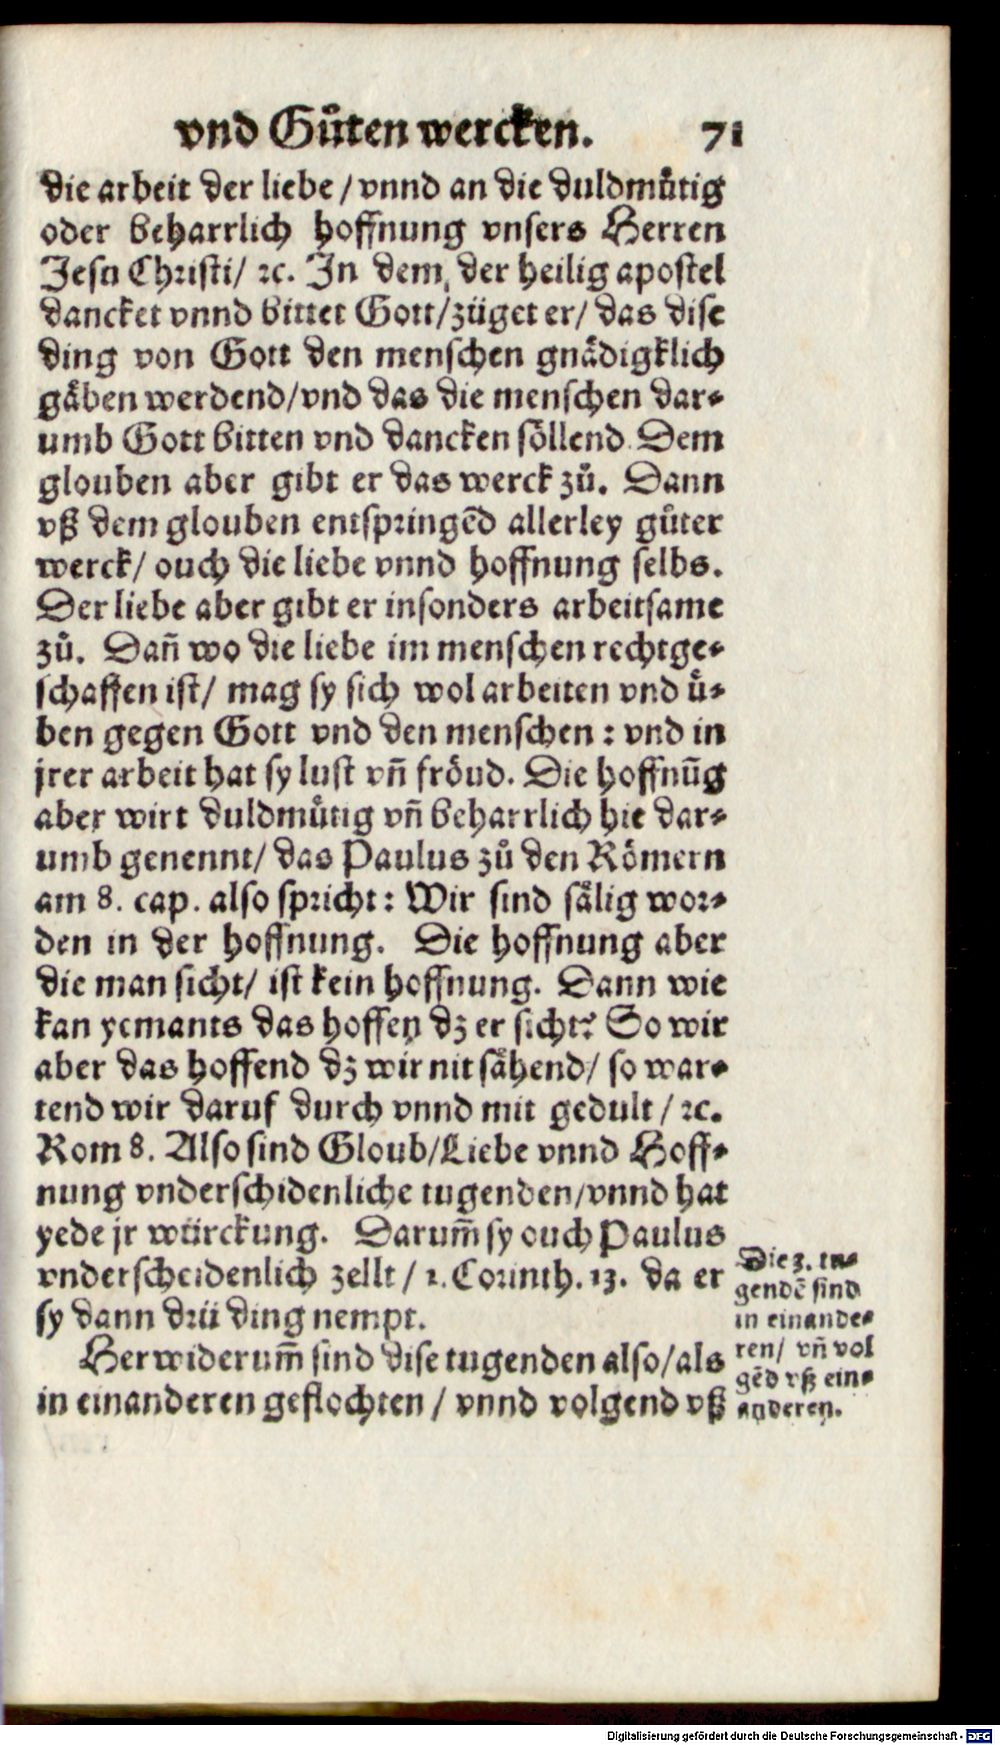 vnd Gůten wercken. 71
die arbeit der liebe / vnnd an die duldmůtig
oder beharrlich hoffnung vnsers Herren
Jesu Christi / ꝛc. In dem, der heilig apostel
dancket vnnd bittet Gott / züget er / das dise
ding von Gott den menschen gnaͤdigklich
gaͤben werdend / vnd das die menschen dar⸗
umb Gott bitten vnd dancken soͤllend. Dem
glouben aber gibt er das werck zů. Dann
vß dem glouben entspringēd allerley gůter
werck / ouch die liebe vnnd hoffnung selbs.
Der liebe aber gibt er insonders arbeitsame
zů. Dañ wo die liebe im menschen rechtge⸗
schaffen ist / mag sy sich wol arbeiten vnd uͤ⸗
ben gegen Gott vnd den menschen : vnd in
jrer arbeit hat sy lust vñ froͤud. Die hoffnūg
aber wirt duldmůtig vñ beharrlich hie dar⸗
umb genennt / das Paulus zů den Roͤmern
am 8. cap. also spricht : Wir sind saͤlig wor⸗
den in der hoffnung. Die hoffnung aber
die man sicht / ist kein hoffnung. Dann wie
kan yemants das hoffen dz er sicht? So wir
aber das hoffend dz wir nit saͤhend / so war⸗
tend wir daruf durch vnnd mit gedult / ꝛc.
Rom 8. Also sind Gloub / Liebe vnnd Hoff⸗
nung vnderschidenliche tugenden / vnnd hat
yede jr würckung. Darum̄ sy ouch Paulus
vnderscheidenlich zellt / 1. Corinth. 13. da er
sy dann drü ding nempt.
Herwiderum̄ sind dise tugenden also / als
in einanderen geflochten / vnnd volgend vß
Die 3. tu⸗
gendē sind
in einande⸗
ren / vñ vol
gēd vß ein⸗
anderen.
Digitalisierung gefördert durch die Deutsche Forschungsgemeinschaft - DFG